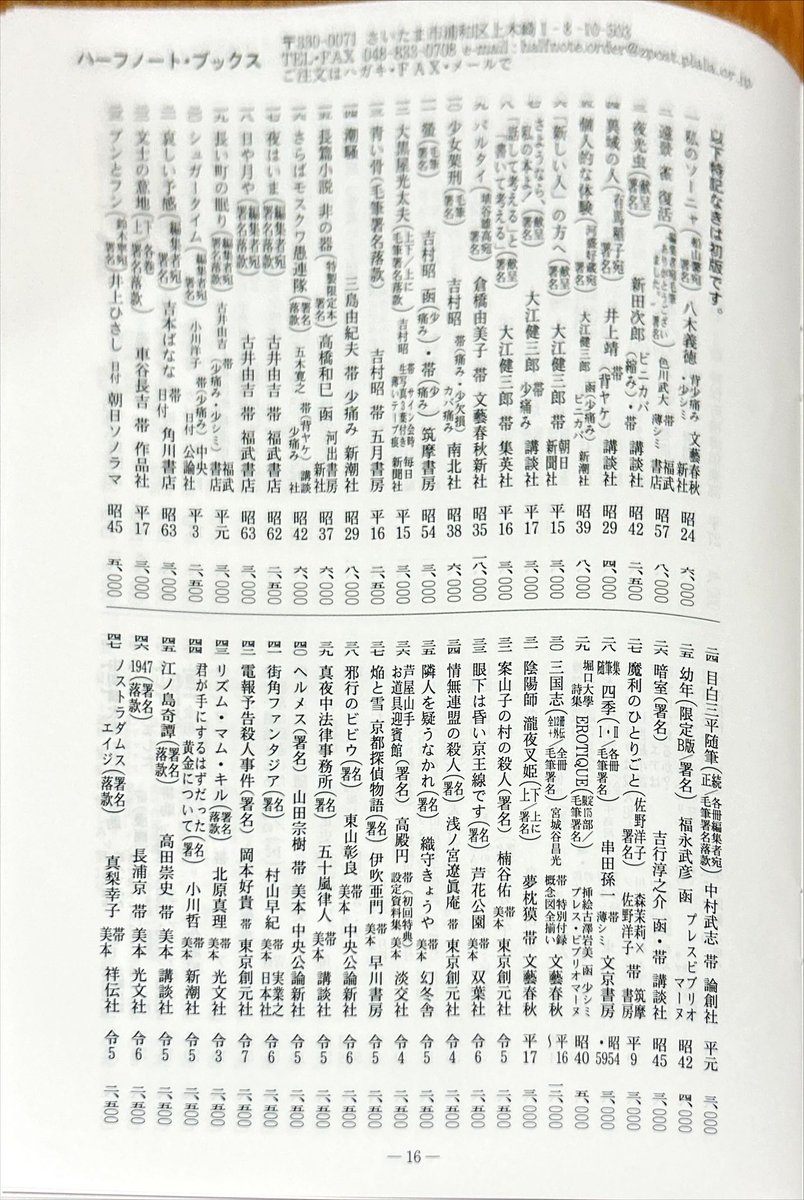 ハーフノート・ブックス
〒330-0071 さいたま市浦和区上木崎1-8-10-503
TEL・FAX 048-833-0708 e-mail : halfnote.order@zpost.plala.or.jp
ご注文はハガキ・FAX・メールで
以下特記なきは初版です。
一 私のソーニャ(船山馨宛署名) 八木義徳 背少痛み・少シミ 文藝春秋新社 昭24 六、〇〇〇
二 遠景 雀 復活 色川武大 帯 薄シミ 福武書店 昭57 八、〇〇〇
三 夜光虫(献呈署名) 新田次郎 ビニカバ(縮み)・帯 講談社 昭42 二、五〇〇
四 異域の人(有馬稲子宛署名) 井上靖(背ヤケ) 講談社 昭29 四、〇〇〇
五 個人的な体験(河盛好蔵宛署名) 大江健三郎 函(少痛み)ビニカバ 新潮社 昭39 八、〇〇〇
六 「新しい人」の方へ(献呈署名) 大江健三郎 帯 朝日新聞社 平15 三、〇〇〇
七 さようなら、私の本よ!(献呈署名) 大江健三郎 帯 少痛み 講談社 平17 三、〇〇〇
八 「話して考える」と「書いて考える」(献呈署名) 大江健三郎 帯 集英社 平16 三、〇〇〇
九 パルタイ(埴谷雄高宛署名) 倉橋由美子 帯 文藝春秋新社 昭35 一八、〇〇〇
一〇 少女架刑(毛筆署名) 吉村昭 帯(痛み・少欠損)カバ痛み 南北社 昭38 六、〇〇〇
一一 螢(毛筆署名) 吉村昭 函(少痛み)・帯(少痛み) 筑摩書房 昭54 三、〇〇〇
一二 大黒屋光太夫(上下/上に毛筆署名落款) 吉村昭 帯 サイン会時生写真3葉付き 薄いテープ痕 毎日新聞社 平15 三、〇〇〇
一三 青い骨(毛筆署名落款) 吉村昭 帯 五月書房 平16 二、五〇〇
一四 潮騒 三島由紀夫 帯 少痛み 新潮社 昭29 八、〇〇〇
一五 長篇小説 非の器(特製限定本署名) 高橋和巳 函 河出書房新社 昭37 六、〇〇〇
一六 さらばモスクワ愚連隊(署名落款) 五木寛之 帯(背ヤケ)少痛み 講談社 昭42 六、〇〇〇
一七 夜はいま(編集者宛毛筆署名落款) 古井由吉 帯 福武書店 昭62 二、五〇〇
一八 日や月や(編集者宛署名落款) 古井由吉 帯 福武書店 昭63 三、〇〇〇
一九 長い町の眠り(編集者宛署名落款) 古井由吉 帯(少痛み・少シミ) 福武書店 平元 三、〇〇〇
二〇 シュガータイム(編集者宛署名) 小川洋子 帯(少痛み)日付 中央公論社 平3 二、五〇〇
二一 哀しい予感(編集者宛署名) 吉本ばなな 帯 日付 角川書店 昭63 三、〇〇〇
二二 文士の意地(上下 各巻署名落款) 車谷長吉 帯 作品社 平17 三、〇〇〇
二三 ブンとフン(鈴木宛署名) 井上ひさし 日付 朝日ソノラマ 昭45 五、〇〇〇
二四 目白三平随筆(正続 各冊編集者宛毛筆署名落款) 中村武志 帯 論創社 平元 三、〇〇〇
二五 幼年(限定B版)(署名) 福永武彦 函 プレスビブリオマーヌ 昭42 四、〇〇〇
二六 暗室(署名) 吉行淳之介 函・帯 講談社 昭45 三、〇〇〇
二七 魔利のひとりごと(佐野洋子署名) 森茉莉×佐野洋子 帯 筑摩書房 平9 三、〇〇〇
二八 随筆集 四季(Ⅰ・Ⅱ 各冊毛筆署名) 串田孫一 帯 薄シミ 文京書房 昭54・59 三、〇〇〇
二九 堀口大學詩集 EROTIQUE(限定115部毛筆署名) 挿絵古澤岩美 函 少シミ プレス・ビブリオマーヌ 昭40 五、〇〇〇
三〇 三国志(全12冊+外伝 全冊毛筆署名) 宮城谷昌光 帯 特別付録概念図全揃い 文藝春秋 平16〜 一二、〇〇〇
三一 陰陽師 瀧夜叉姫(上下/上に署名) 夢枕獏 帯 文藝春秋 平17 三、〇〇〇
三二 案山子の村の殺人(署名) 楠谷佑 帯 美本 東京創元社 令5 二、五〇〇
三三 眼下は昏い京王線です(署名) 芦花公園 帯 美本 双葉社 令6 二、五〇〇
三四 情無連盟の殺人(署名) 浅ノ宮遼 眞庵 帯 東京創元社 令4 二、五〇〇
三五 隣人を疑うなかれ(署名) 織守きょうや 帯 美本 幻冬舎 令5 二、五〇〇
三六 芦屋山手 お道具迎賓館(署名) 高殿円 帯(初回特典)設定資料集 美本 淡交社 令4 二、五〇〇
三七 焔と雪 京都探偵物語(署名) 伊吹亜門 帯 美本 早川書房 令5 二、五〇〇
三八 邪行のビビウ(署名) 東山彰良 帯 美本 中央公論新社 令6 二、五〇〇
三九 真夜中法律事務所(署名) 五十嵐律人 帯 美本 講談社 令5 二、五〇〇
四〇 ヘルメス(署名) 山田宗樹 帯 美本 中央公論新社 令5 二、五〇〇
四一 街角ファンタジア(署名) 村山早紀 帯 美本 実業之日本社 令6 二、五〇〇
四二 電報予告殺人事件(署名) 岡本好貴 帯 東京創元社 令7 二、五〇〇
四三 リズム・マム・キル(署名落款) 北原真理 帯 美本 光文社 令3 二、五〇〇
四四 君が手にするはずだった黄金について(署名) 小川哲 帯 美本 新潮社 令5 二、五〇〇
四五 江ノ島奇譚(署名落款) 高田崇史 帯 美本 講談社 令5 二、五〇〇
四六 1947(署名落款) 長浦京 帯 美本 光文社 令6 二、五〇〇
四七 ノストラダムス・エイジ(署名落款) 真梨幸子 帯 美本 祥伝社 令5 二、五〇〇
— 16 —